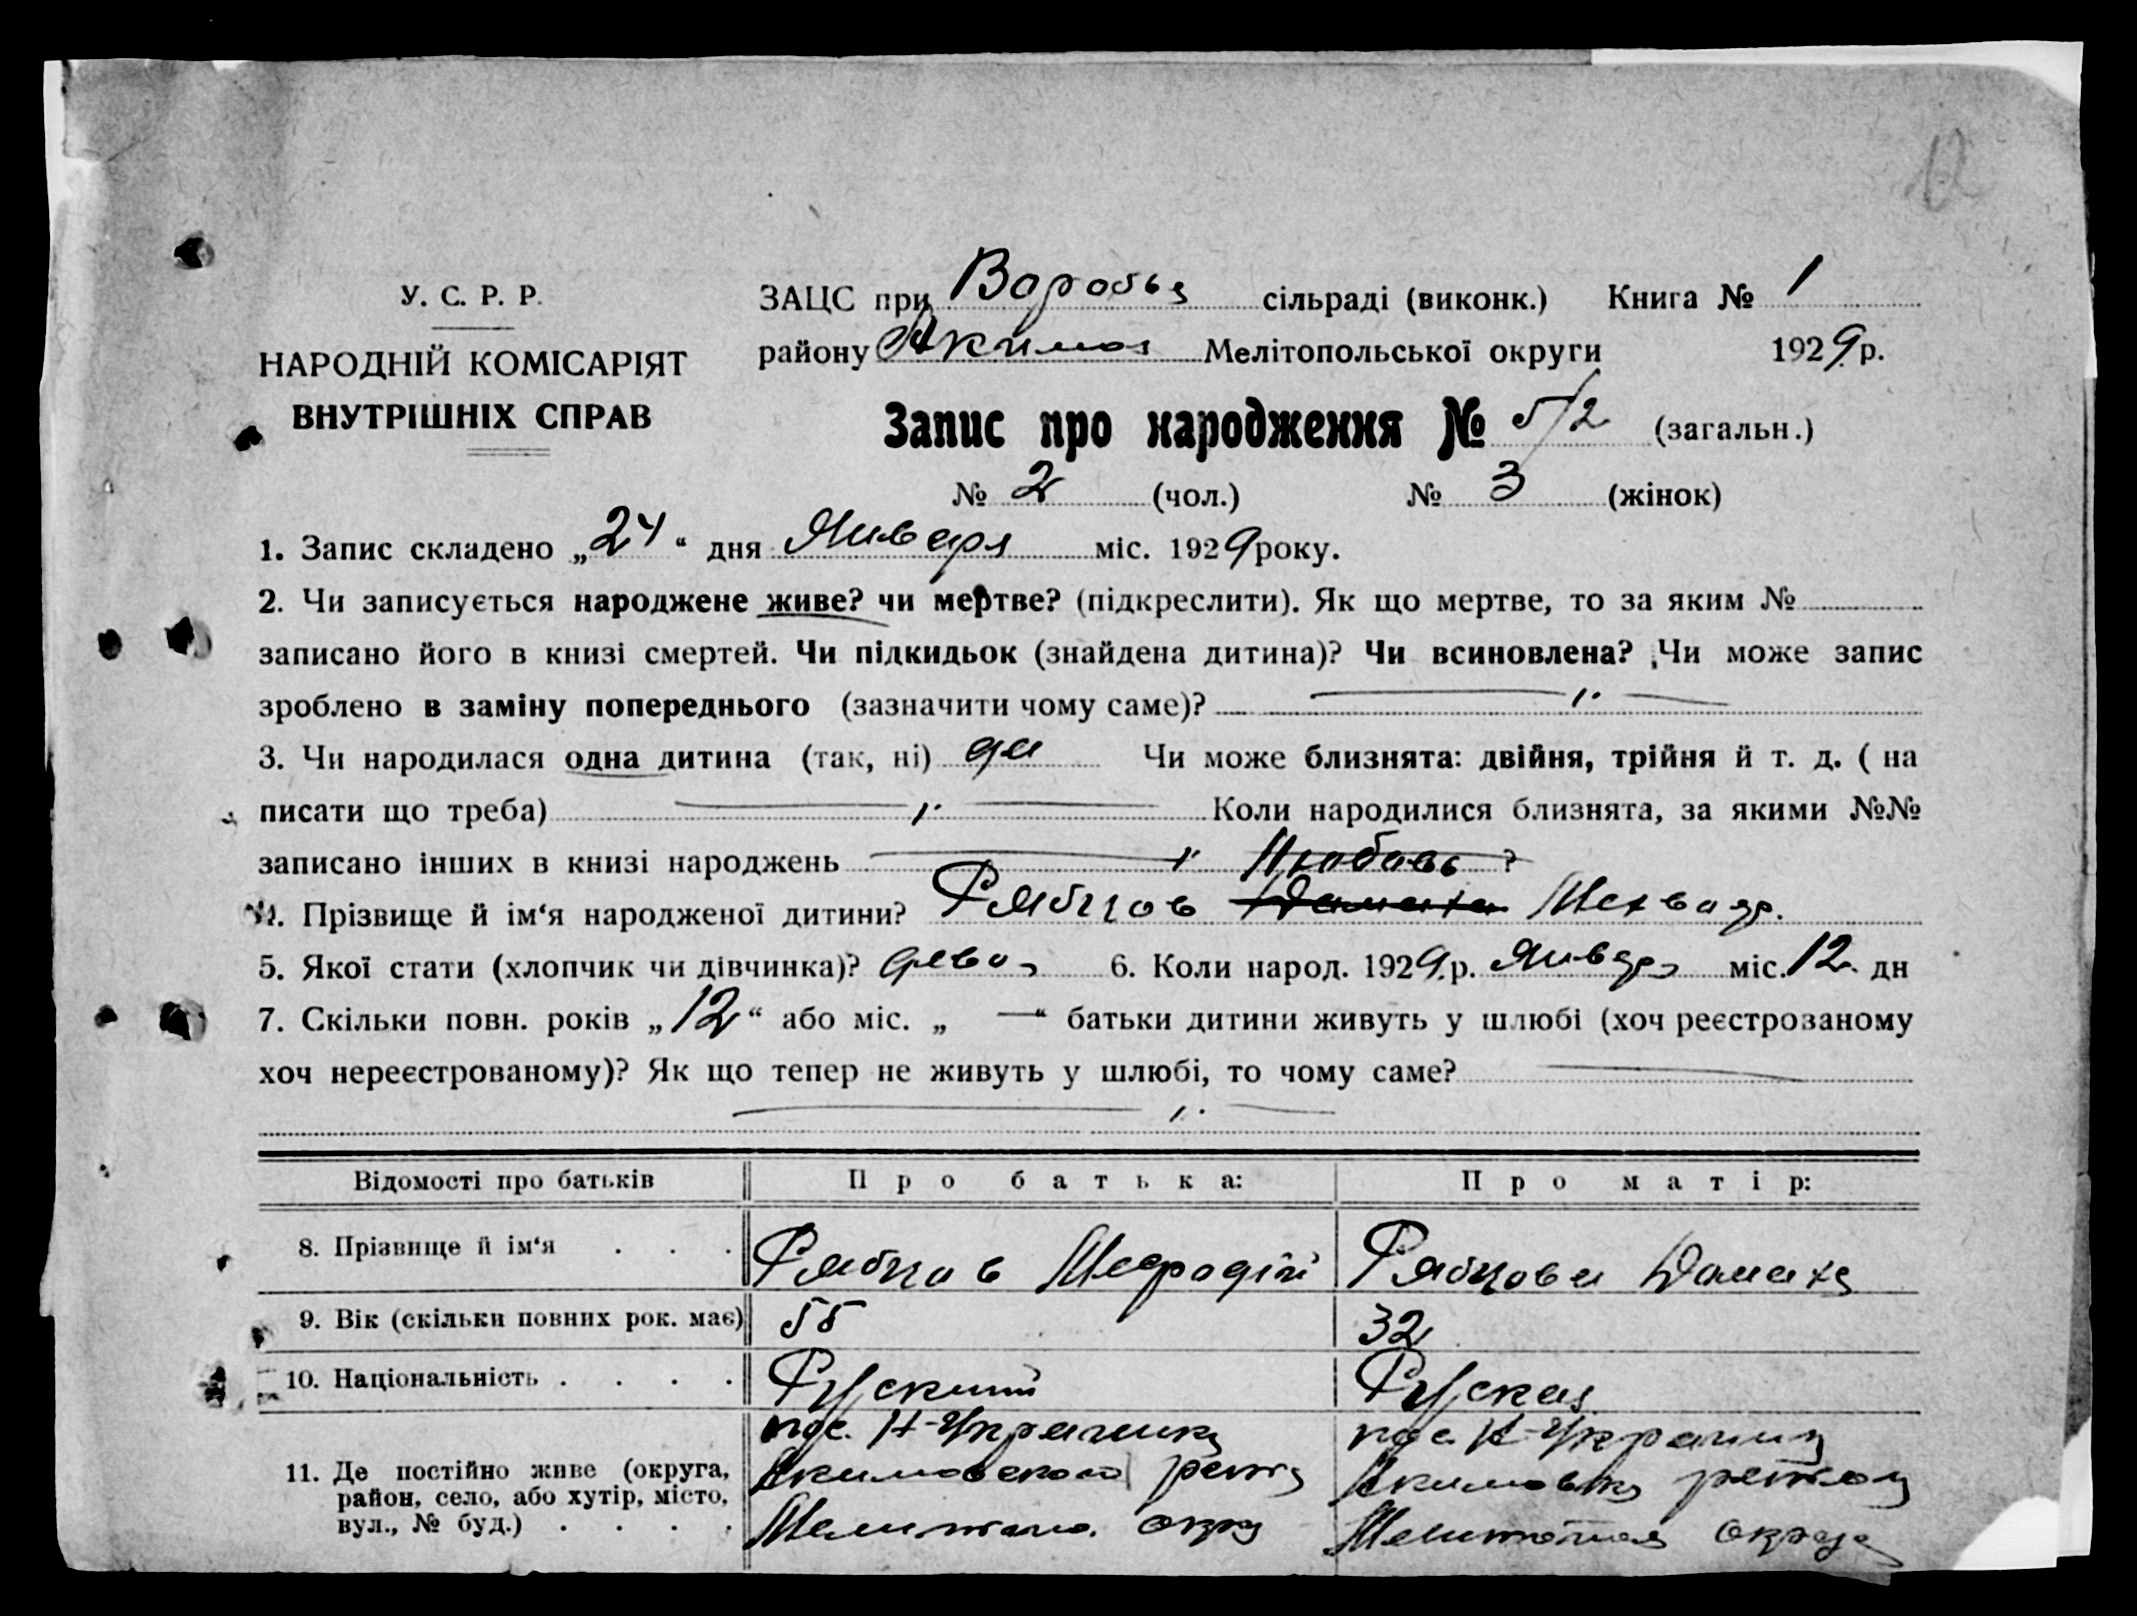 У. С. Р. Р.
НАРОДНІЙ КОМІСАРІЯТ
ВНУТРІШНІХ СПРАВ
ЗАЦС при сільраді (виконк.) Книга № 1
району Мелітопольської округи 1929 р.
Запис про народження № 5/2 (загальн.)
№ 2 (чол.) № 3 (жінок)
1. Запис складено „24“ дня Января міс. 1929 року.
2. Чи записується народжене живе? чи мертве? (підкреслити). Як що мертве, то за яким №
записано його в книзі смертей. Чи підкидьок (знайдена дитина)? Чи всиновлена? Чи може запис
зроблено в заміну попереднього (зазначити чому саме)?
3. Чи народилася одна дитина (так, ні) да Чи може близнята: двійня, трійня й т. д. ( на
писати що треба) Коли народилися близнята, за якими №№
записано інших в книзі народжень Любовь ?
4. Прізвище й ім‘я народженої дитини? Рябцов
5. Якої стати (хлопчик чи дівчинка)? 6. Коли народ. 1929 р. Января міс. 12 дн
7. Скільки повн. років „12“ або міс. „ —“ батьки дитини живуть у шлюбі (хоч реєстрованому
хоч нереєстрованому)? Як що тепер не живуть у шлюбі, то чому саме?
Відомості про батьків Про батька: Про матір:
8. Прізвище й ім‘я . . . Рябцов Мефодій Рябцова Домаха
9. Вік (скільки повних рок. має) 55 32
10. Національність . . . . Руский Руская
11. Де постійно живе (округа,
район, село, або хутір, місто,
вул., № буд.) . . . .
пос. Н-Украинка
Акимовского
пос. Н-Украинка